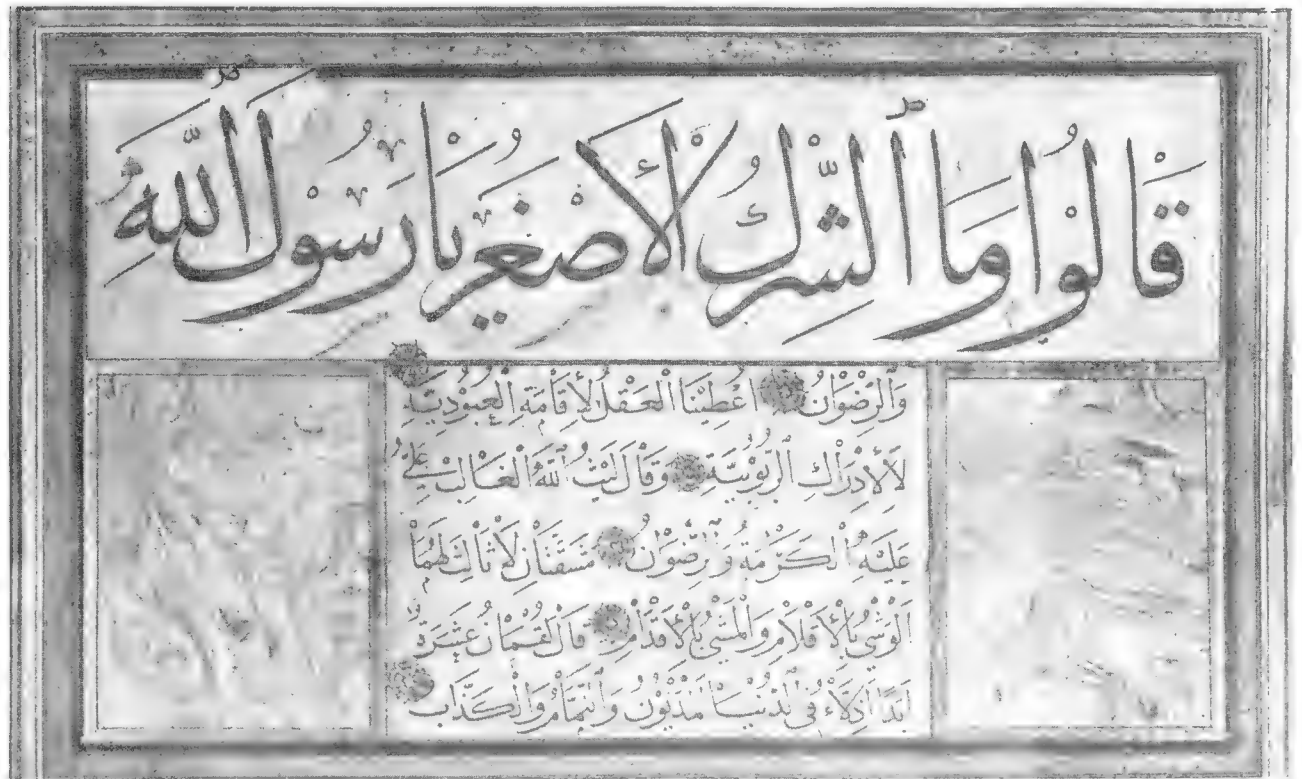 قَالُوا وَمَا ٱلشِّرْكُ ٱلْأَصْغَرُ يَا رَسُولَ ٱللَّهِ
وَٱلرِّضْوَانُ أُعْطِينَا ٱلْعَقْلَ لِإِقَامَةِ ٱلْعُبُودِيَّةِ
لَا لِإِدْرَاكِ ٱلرُّبُوبِيَّةِ وَقَالَ لَيْثُ ٱللَّهِ ٱلْغَالِبُ عَلِيٌّ
عَلَيْهِ ٱلْكَرَامَةُ وَٱلرِّضْوَانُ مَشَقَّتَانِ لَا ثَالِثَ لَهُمَا
ٱلْوَشْيُ بِٱلْأَقْلَامِ وَٱلْمَشْيُ بِٱلْأَقْدَامِ قَالَ لُقْمَانُ عَشَرَةٌ
أَبَدًا أَذِلَّاءُ فِي ٱلدُّنْيَا مَدْيُونٌ وَٱلنَّمَّامُ وَٱلْكَذَّابُ